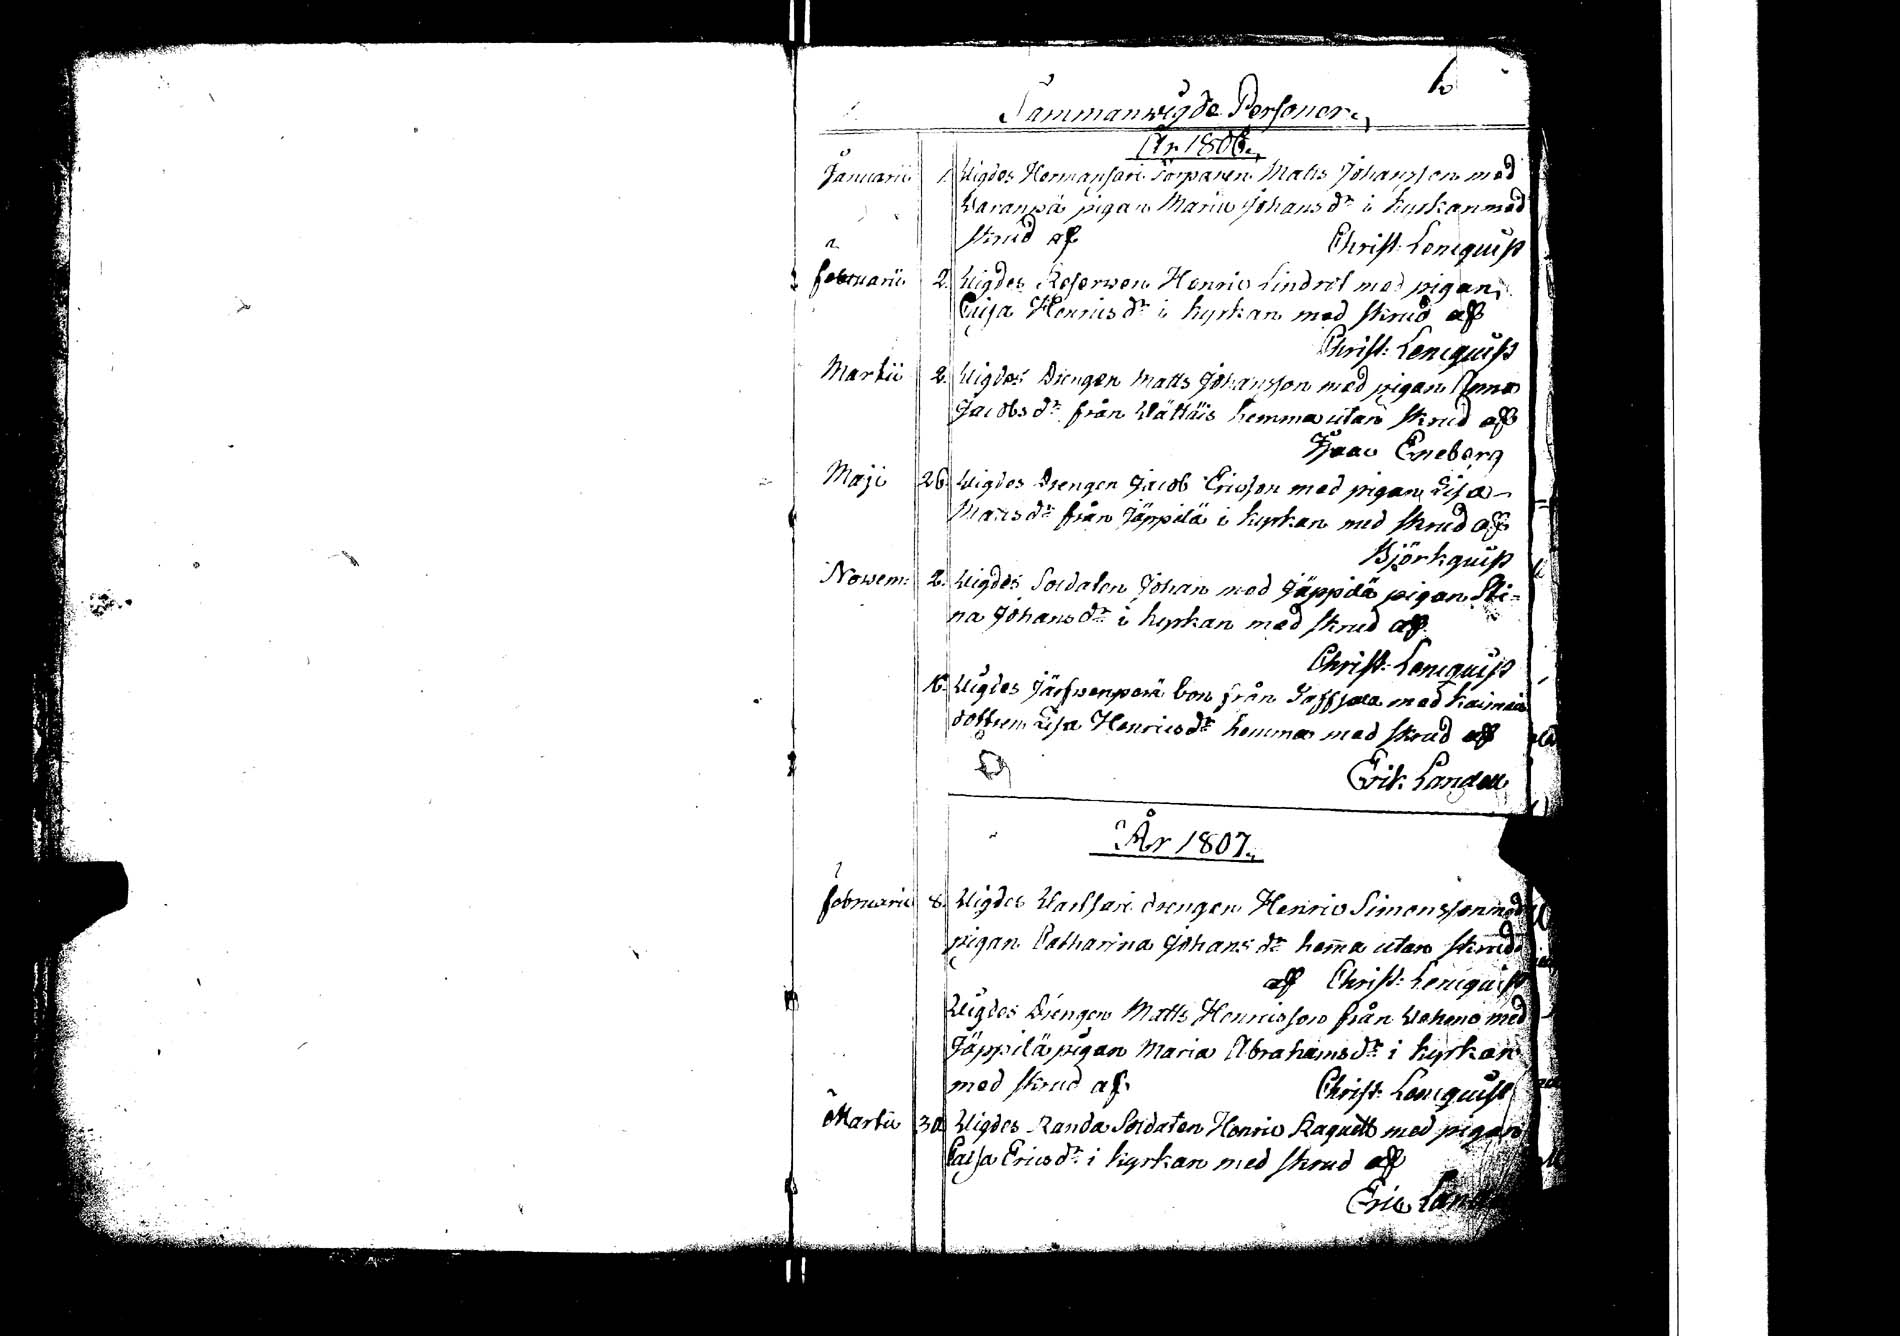 Sammanwigde Personer.,
År 1806.,
Januarii 1. Wigdes Hermansari Torparen Matts Johansson med
Waranpä pigan Maria Johans dr i kyrkan med
skrud af Christ: Lencquist
Februarii 2. Wigdes Reserven Henric Lindrot med pigan
Caisa Henrics dr i kyrkan med skrud aff
Christ: Lencquist
Martii 2. Wigdes Drengen Matts Johansson med pigan Anna
Jacobs dr från hemma utan skrud aff
Isaac Eneberg
Maji 26 Wigdes Drengen Jacob Ericsson med pigan Lisa
Matts dr från Jäppilä i kyrkan med skrud aff
Björkquist
Novem: 2. Wigdes Soldaten Johan med Jäppilä pigan Sti-
na Johans dr i kyrkan med skrud aff
Christ: Lencquist
Wigdes Järfwenperä bon från med
dottren Lisa Henrics dr hemma med skrud aff
Erik Landell
År 1807.,
Februarii 8. Wigdes drengen Henric Simonsson med
pigan Catharina Johans dr hem̃a utan skrud
aff Christ: Lencquist
Wigdes Drengen Matts Henricsson från med
Jäppilä pigan Maria Abrahams dr i kyrkan
med skrud af Christ: Lencquist
Martii 30 Wigdes Randa Soldaten Henric med pigan
Caisa Erics dr i kyrkan med skrud aff
Eric